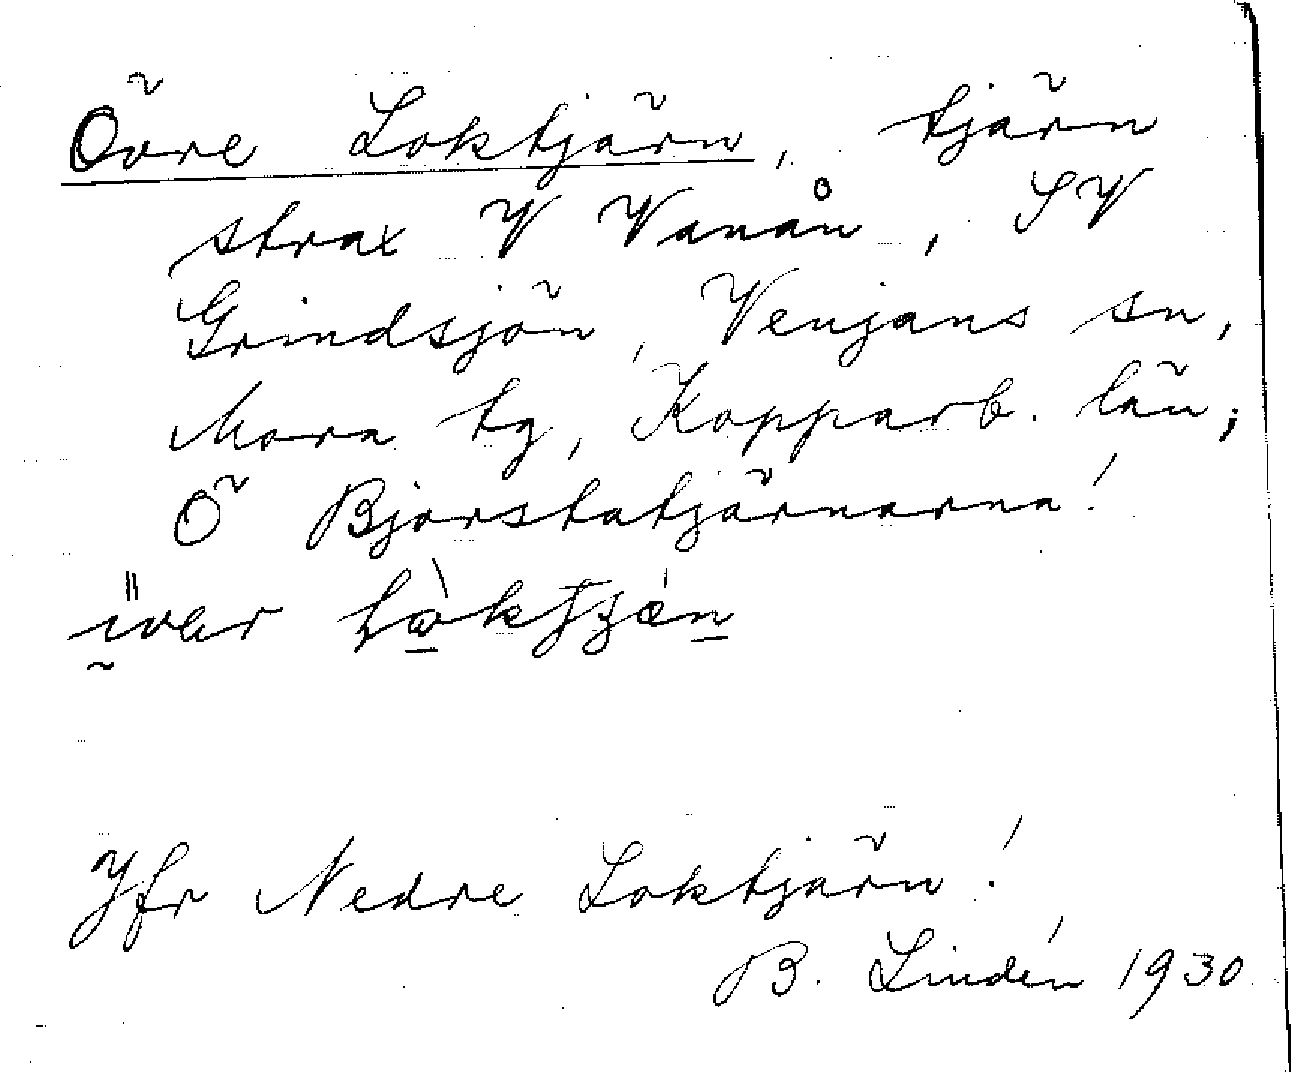 Övre Loktjärn, tjärn
strax V Vanån, SV
Grindsjön, Venjans sn,
Mora tg, Kopparb. län;
Ö Bjorstatjärnarna!
Jfr Nedre Loktjärn!
B. Lindén 1930